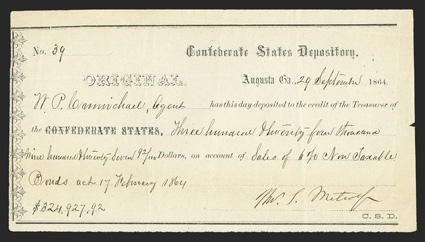 No. 39
Confederate States Depository,
ORIGINAL.
Augusta Ga., 29 September 1864
W. P. Carmichael, Agent has this day deposited to the credit of the Treasurer of
the CONFEDERATE STATES, Three hundred & twenty four thousand
nine hundred & twenty seven 92/100 Dollars, on account of Sales of 6 % Non Taxable
Bonds act 17 February 1864
$324,927.92
Tho. S. Metcalf
C. S. D.